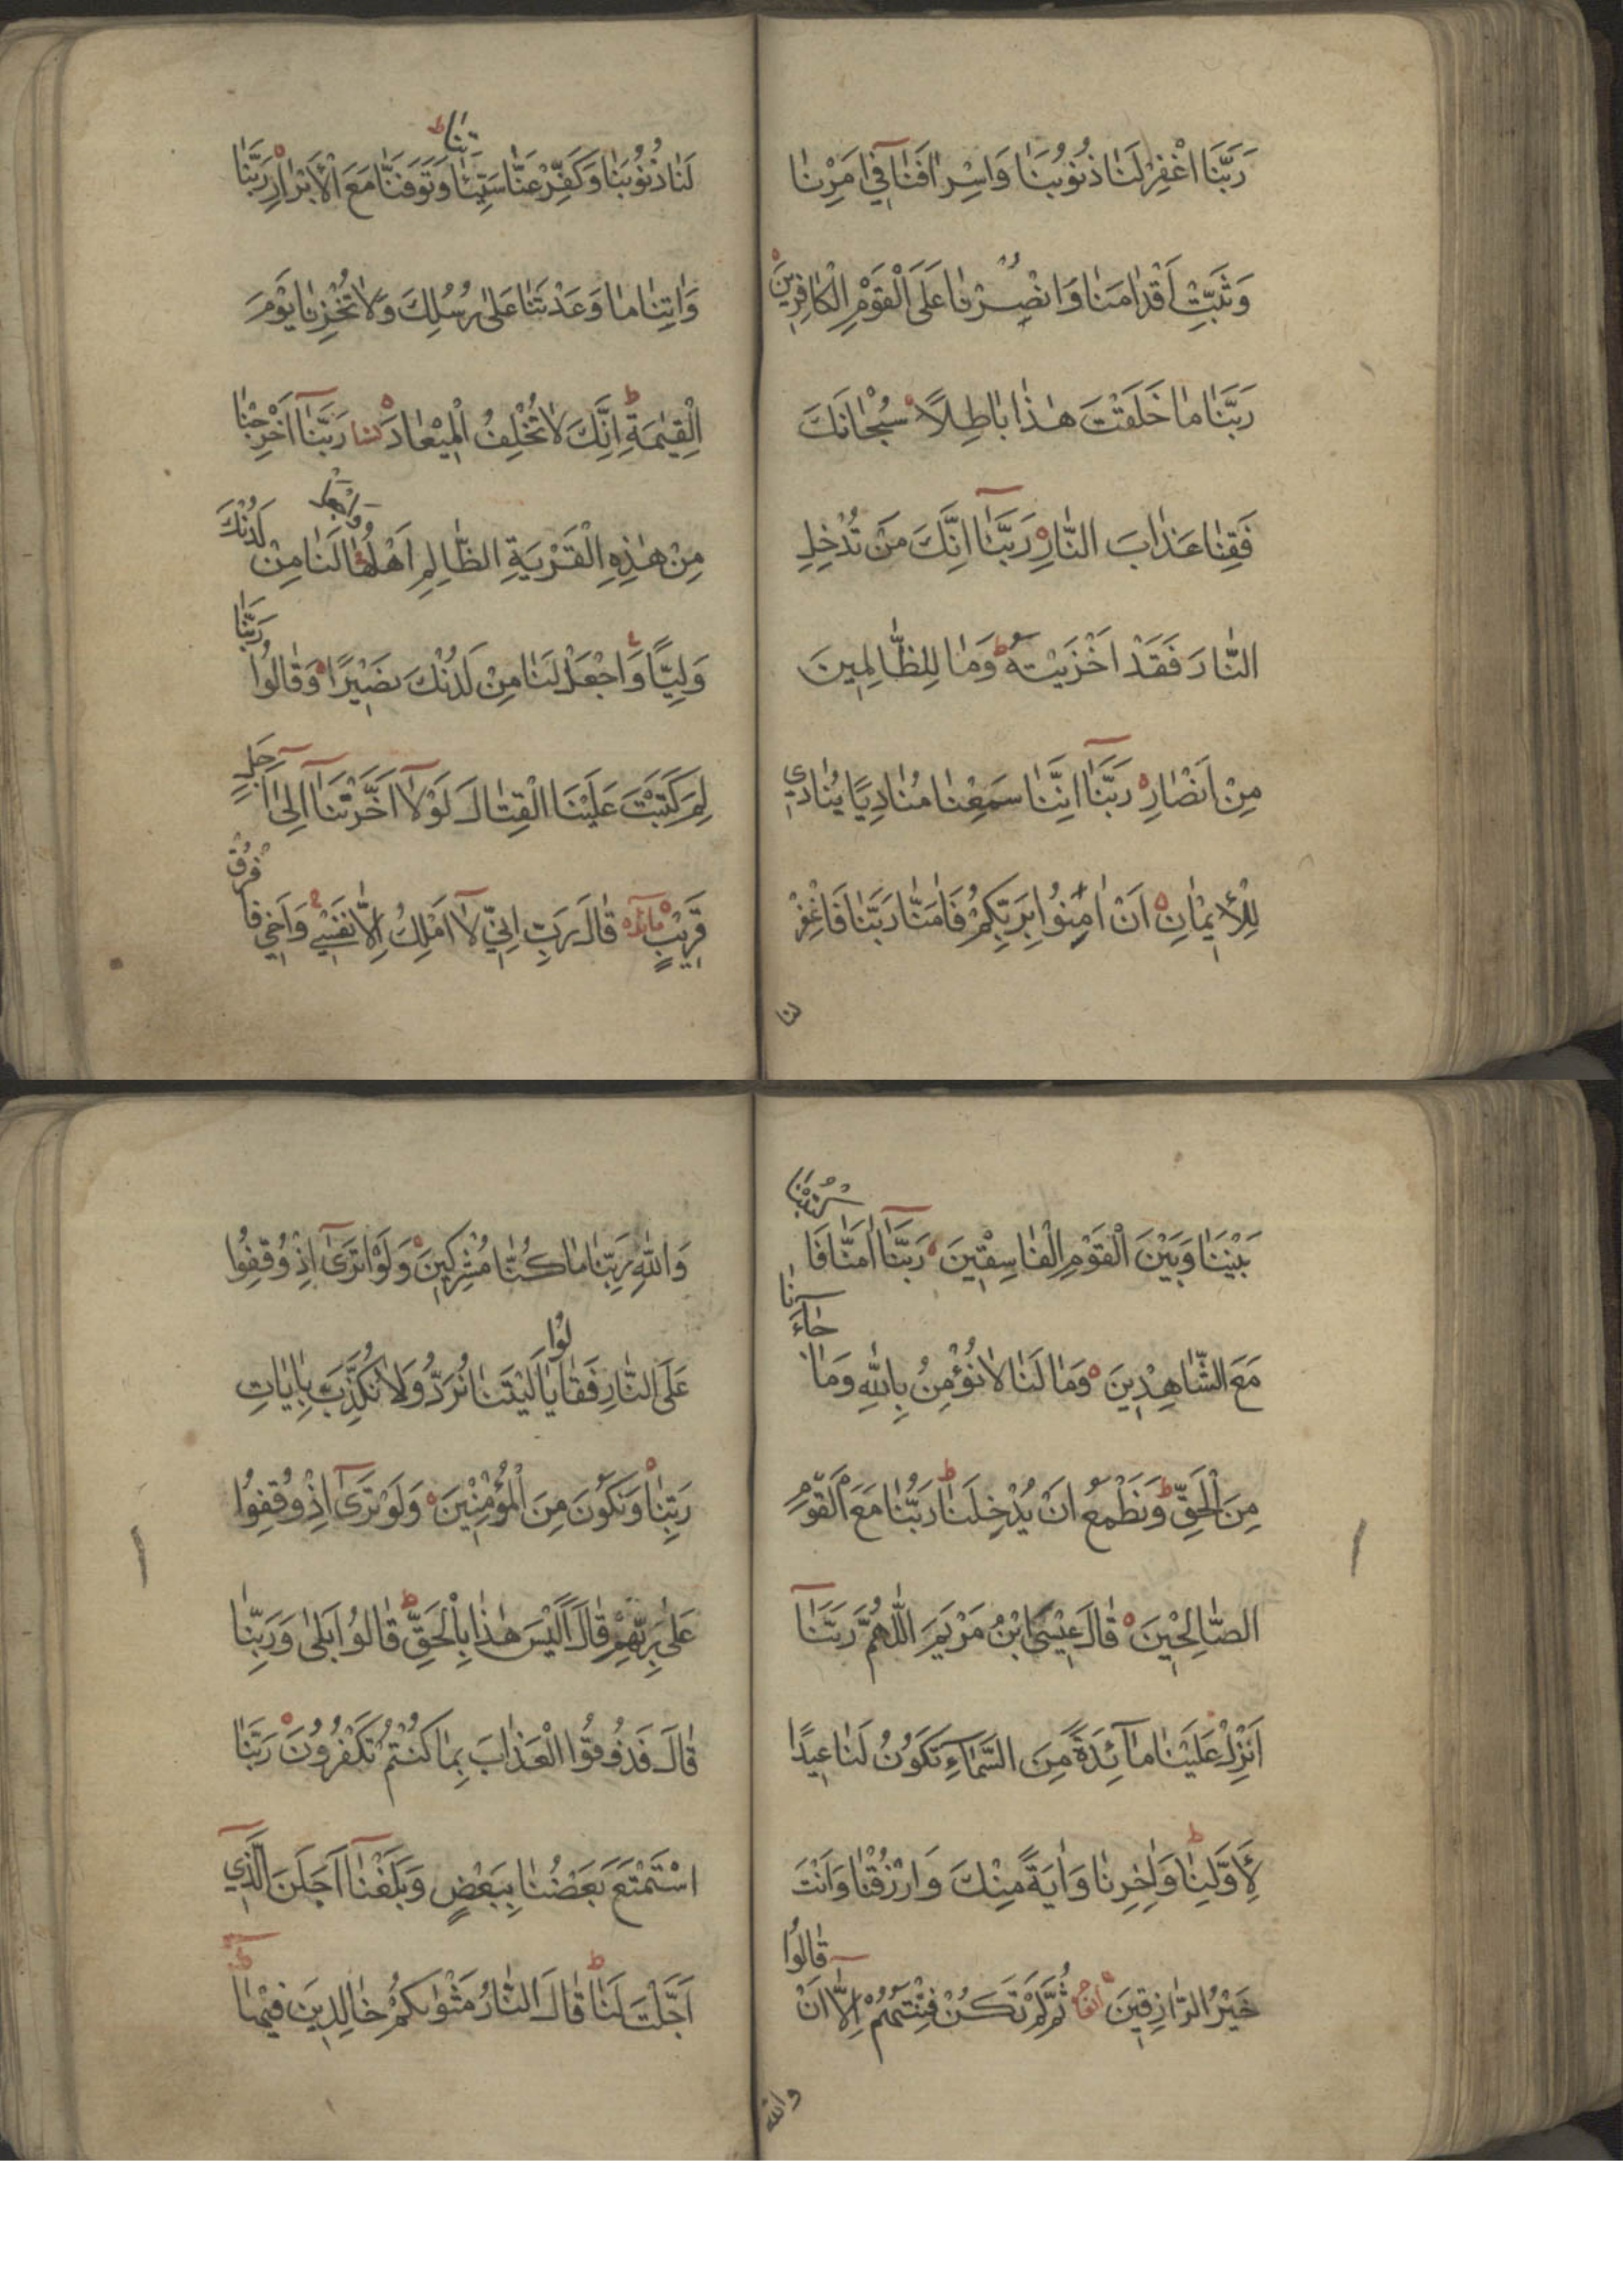 رَبَّنَا اغْفِرْ لَنَا ذُنُوبَنَا وَاِسْرَافَنَا فِي اَمْرِنَا
وَثَبِّتْ اَقْدَامَنَا وَانْصُرْنَا عَلَى الْقَوْمِ الْكَافِرِينَ
رَبَّنَا مَا خَلَقْتَ هٰذَا بَاطِلًا سُبْحَانَكَ
فَقِنَا عَذَابَ النَّارِ رَبَّنَا اِنَّكَ مَنْ تُدْخِلِ
النَّارَ فَقَدْ اَخْزَيْتَهُ وَمَا لِلظَّالِمِينَ
مِنْ اَنْصَارٍ رَبَّنَا اِنَّنَا سَمِعْنَا مُنَادِيًا يُنَادِي
لِلْاِيمَانِ اَنْ اٰمِنُوا بِرَبِّكُمْ فَاٰمَنَّا رَبَّنَا فَاغْفِرْ
لنا
لَنَا ذُنُوبَنَا وَكَفِّرْ عَنَّا سَيِّئَاتِنَا وَتَوَفَّنَا مَعَ الْاَبْرَارِ رَبَّنَا
وَاٰتِنَا مَا وَعَدْتَنَا عَلٰى رُسُلِكَ وَلَا تُخْزِنَا يَوْمَ
الْقِيٰمَةِ اِنَّكَ لَا تُخْلِفُ الْمِيعَادَ نسا رَبَّنَا اَخْرِجْنَا
مِنْ هٰذِهِ الْقَرْيَةِ الظَّالِمِ اَهْلُهَا وَاجْعَلْ لَنَا مِنْ لَدُنْكَ
وَلِيًّا وَاجْعَلْ لَنَا مِنْ لَدُنْكَ نَصِيرًا وَقَالُوا رَبَّنَا
لِمَ كَتَبْتَ عَلَيْنَا الْقِتَالَ لَوْلَا اَخَّرْتَنَا اِلٰى اَجَلٍ
قَرِيبٍ مائده قَالَ رَبِّ اِنِّي لَا اَمْلِكُ اِلَّا نَفْسِي وَاَخِي فَافْرُقْ
بَيْنَنَا وَبَيْنَ الْقَوْمِ الْفَاسِقِينَ رَبَّنَا اٰمَنَّا فَاكْتُبْنَا
مَعَ الشَّاهِدِينَ وَمَا لَنَا لَا نُؤْمِنُ بِاللّٰهِ وَمَا جَاءَنَا
مِنَ الْحَقِّ وَنَطْمَعُ اَنْ يُدْخِلَنَا رَبُّنَا مَعَ الْقَوْمِ
الصَّالِحِينَ قَالَ عِيسَى ابْنُ مَرْيَمَ اللّٰهُمَّ رَبَّنَا
اَنْزِلْ عَلَيْنَا مَائِدَةً مِنَ السَّمَاءِ تَكُونُ لَنَا عِيدًا
لِاَوَّلِنَا وَاٰخِرِنَا وَاٰيَةً مِنْكَ وَارْزُقْنَا وَاَنْتَ
خَيْرُ الرَّازِقِينَ ثُمَّ لَمْ تَكُنْ فِتْنَتُهُمْ اِلَّا اَنْ قَالُوا
والله
وَاللّٰهِ رَبِّنَا مَا كُنَّا مُشْرِكِينَ وَلَوْ تَرٰى اِذْ وُقِفُوا
عَلَى النَّارِ فَقَالُوا يَا لَيْتَنَا نُرَدُّ وَلَا نُكَذِّبَ بِاٰيَاتِ
رَبِّنَا وَنَكُونَ مِنَ الْمُؤْمِنِينَ وَلَوْ تَرٰى اِذْ وُقِفُوا
عَلٰى رَبِّهِمْ قَالَ اَلَيْسَ هٰذَا بِالْحَقِّ قَالُوا بَلٰى وَرَبِّنَا
قَالَ فَذُوقُوا الْعَذَابَ بِمَا كُنْتُمْ تَكْفُرُونَ رَبَّنَا
اسْتَمْتَعَ بَعْضُنَا بِبَعْضٍ وَبَلَغْنَا اَجَلَنَا الَّذِي
اَجَّلْتَ لَنَا قَالَ النَّارُ مَثْوٰيكُمْ خَالِدِينَ فِيهَا